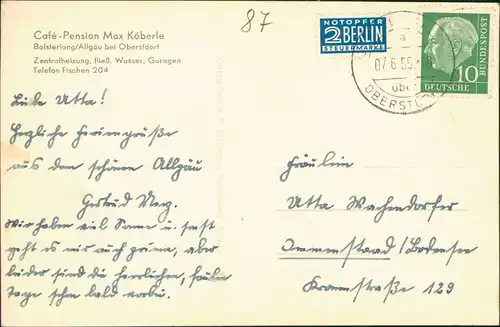 Café-Pension Max Köberle
Bolsterlang/Allgäu bei Oberstdorf
Zentralheizung, fließ. Wasser, Garagen
Telefon Fischen 204
87
NOTOPFER
2 BERLIN
STEUERMARKE
a
07.6.55
über
OBERSTD
10
DEUTSCHE
BUNDESPOST
Liebe Utta!
Herzliche Feriengrüße
aus dem schönen Allgäu
Gertrud
Wir haben viel Sonne u. sonst
geht es mir auch prima, aber
leider sind die herrlichen, faulen
Tage schon bald vorbei.
Fräulein
Utta Wachendorfer
Immenstaad/Bodensee
Kronnstraße 129